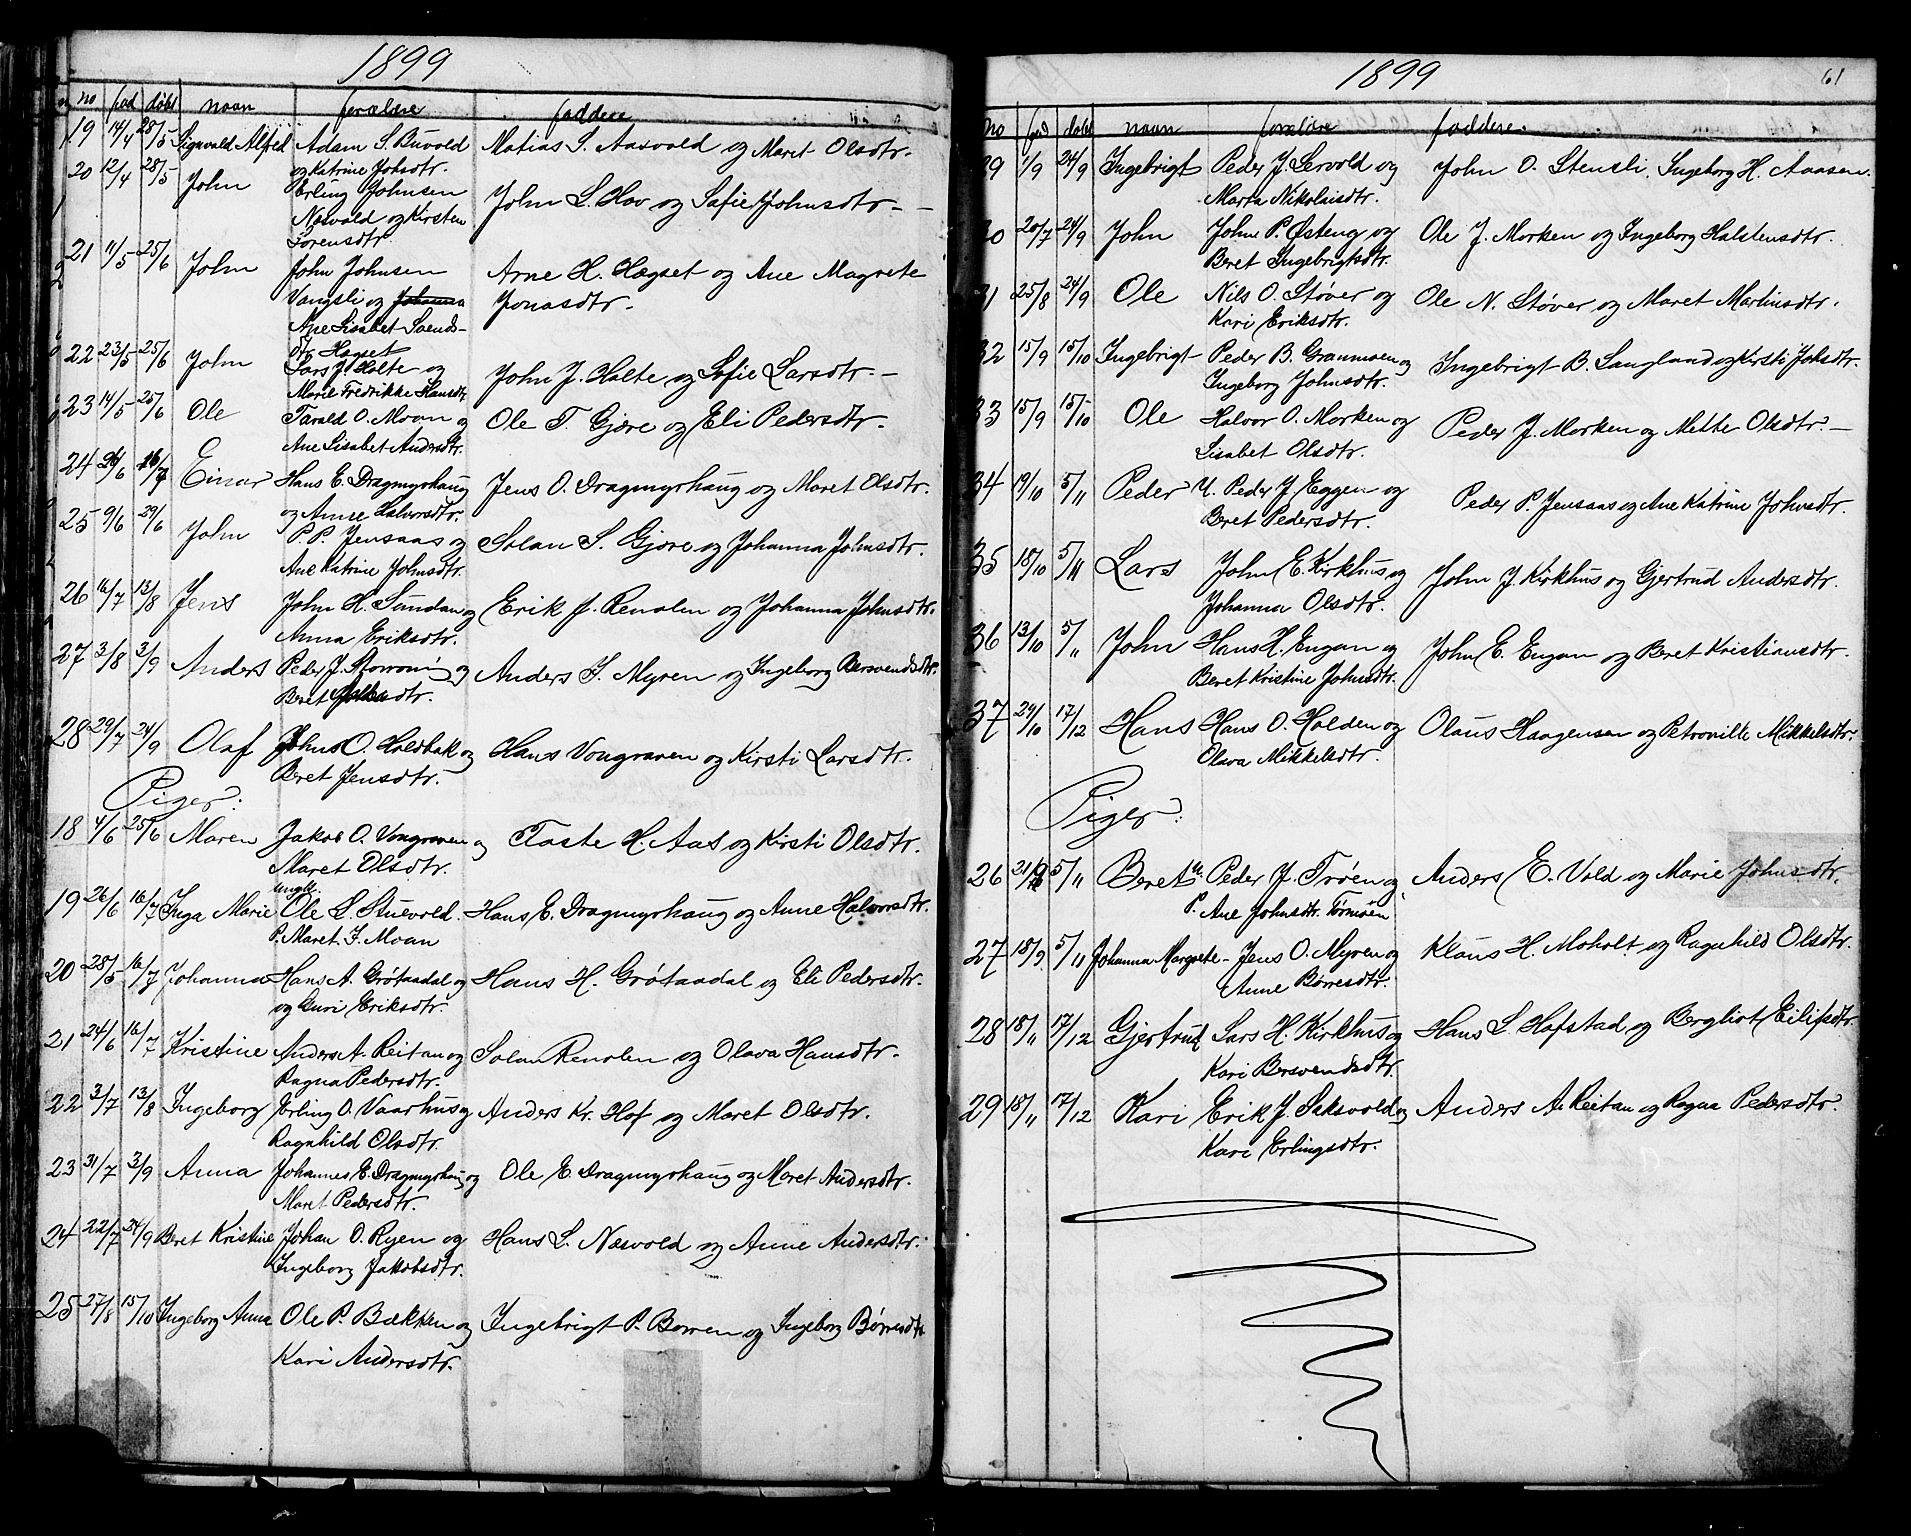 1899
no. fød døbt navn forældre faddere
19 14/4 28/5 Sigvald Alfred Adam S. Buvold Matias S. Aasvold og Maret Olsdtr.
og Katrine Johsdtr.
20 12/4 28/5 John Erling Johnsen John L. Hov og Sofie Johnsdtr.
Næsvold og Kirsten
Sørensdtr
21 11/5 25/6 John John Johnsen Arne H. Hægset og Ane Magrete
Vangsli og Johanna Jonasdtr.
Ane Lisabet Svends-
dtr Hægset
22 23/5 25/6 John Lars J. Holte og John J. Holte og Sofie Larsdtr.
Marie Fredrikke Hansdtr
23 14/5 25/6 Ole Tarald O. Moan og Ole T. Gjære og Eli Pedersdtr.
Ane Lisabet Andersdtr.
24 24/6 16/7 Einar Hans E. Dragmyrhaug Jens O. Dragmyrhaug og Maret Olsdtr.
og Anne Halvorsdtr.
25 9/6 29/6 John P. P. Jensaas og Solan S. Gjøre og Johanna Johnsdtr.
Ane Katrine Johnsdtr.
26 16/7 13/8 Jens John H. Sundan og Erik J. Renolen og Johanna Johnsdtr.
Anna Eriksdtr.
27 3/8 3/9 Anders Peder J. Storrøning og Anders J. Myren og Ingeborg Bersvendsdtr.
Beret
28 29/7 24/9 Olaf Johns O. Holdbak og Hans Vongraven og Kirsti Larsdtr.
Beret Jensdtr.
Piger:
18 4/6 25/6 Maren Jakob O. Vongraven og Taste H. Aas og Kirsti Olsdtr.
Maret Olsdtr.
ungk.
19 26/6 16/7 Inga Marie Ole L. Stuevold. Hans E. Dragmyrhaug og Anne Halvorsdtr.
P. Maret J. Moan
20 28/5 16/7 Johanna Hans A. Grøtaadal og Hans H. Grøtaadal og Eli Pedersdtr.
og Guri Eriksdtr.
21 24/6 16/7 Kristine Anders A. Reitan og Solan Renolen og Olava Hansdtr.
Ragna Pedersdtr.
22 3/7 13/8 Ingeborg Erling O. Vaarhus og Anders Kr. Hof og Maret Olsdtr.
Ragnhild Olsdtr.
23 31/7 3/9 Anna Johannes E. Dragmyrhaug og Ole E. Dragmyrhaug og Maret Andersdtr.
Maret Pedersdtr.
24 22/7 24/9 Beret Kristine Johan O. Ryen og Hans L. Næsvold og Anne Andersdtr.
Ingeborg Jakobsdtr.
25 27/8 15/10 Ingeborg Anna Ole P. Bækken og Ingebrigt P. Borren og Ingeborg Børresdtr
Kari Andersdtr.
1899 61
no fød døbt navn forældre faddere
29 1/9 24/9 Ingebrigt Peder J. Lervold og John O. Stensli, Ingeborg H. Aaasen.
Marta Nikolaisdtr.
30 20/7 24/9 John John P. Østeng og Ole J. Morken og Ingeborg Halstensdtr.
Beret Ingebrigtsdtr.
31 25/8 24/9 Ole Nils O. Støver og Ole N. Støver og Maret Martinsdtr.
Kari Eriksdtr.
32 15/9 15/10 Ingebrigt Peder B. Granmoen og Ingebrigt B. Langland og Kirsti Johsdtr.
Ingeborg Johnsdtr.
33 15/9 15/10 Ole Halvor O. Morken og Peder J. Morken og Mette Olsdtr.
Lisabet Olsdtr.
34 19/10 5/11 Peder U. Peder J. Eggen og Peder P. Jensaas og Ane Katrine Johnsdtr.
Beret Pedersdtr.
35 18/10 5/11 Lars John E. Kirkhus og John J. Kirkhus og Gjertrud Andersdtr.
Johanna Olsdtr.
36 13/10 5/11 John Hans H. Engan og John E. Engan og Beret Kristiansdtr.
Beret Kristine Johnsdtr.
37 24/10 17/12 Hans Hans O. Holden og Olaus Haagensen og Petronille Mikkelsdtr.
Olava Mikkelsdtr.
Piger:
26 21/9 5/11 Beret u. Peder J. Trøen og Anders E. Vold og Marie Johnsdtr.
P. Ane Johnsdtr. Tømoen
27 18/9 5/11 Johanna Margrete Jens O. Myren og Klaus H. Moholt og Ragnhild Olsdtr.
Anne Børresdtr.
28 18/11 17/12 Gjertrud Lars H. Kirkhus og Hans L. Hofstad og Bergliot Eilifsdtr.
Kari Bersvendsdtr.
29 18/11 17/12 Kari Erik J. Saksvold og Anders A. Reitan og Ragna Pedersdtr.
Kari Erlingsdtr.